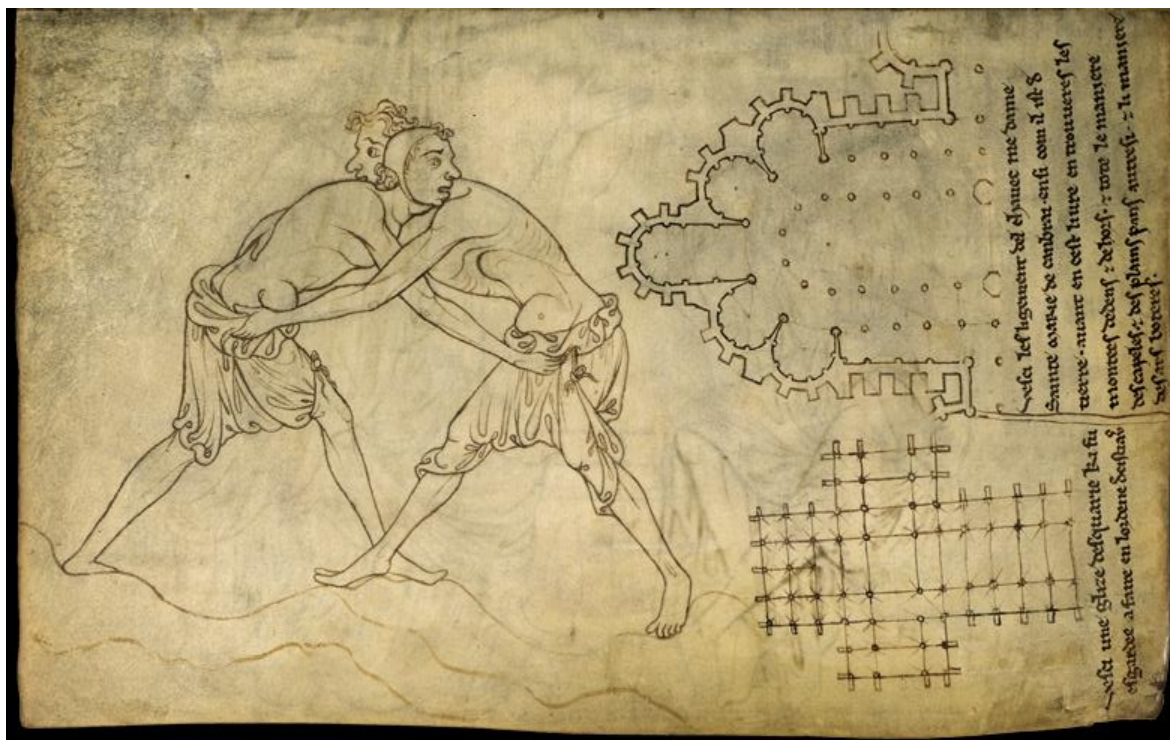 vesci lesligement del chavec me dame
Sainte marie de canbrai ensi com il ist d
tierre. avant en cest livre en trouveres les
montees dedens ⁊ dehors. ⁊ tote le maniere
des capeles. ⁊ des plains pans autresi. ⁊ li maniere
des ars boteres.
vesci une glize desquarie ki fu
esgardee a faire en lordene